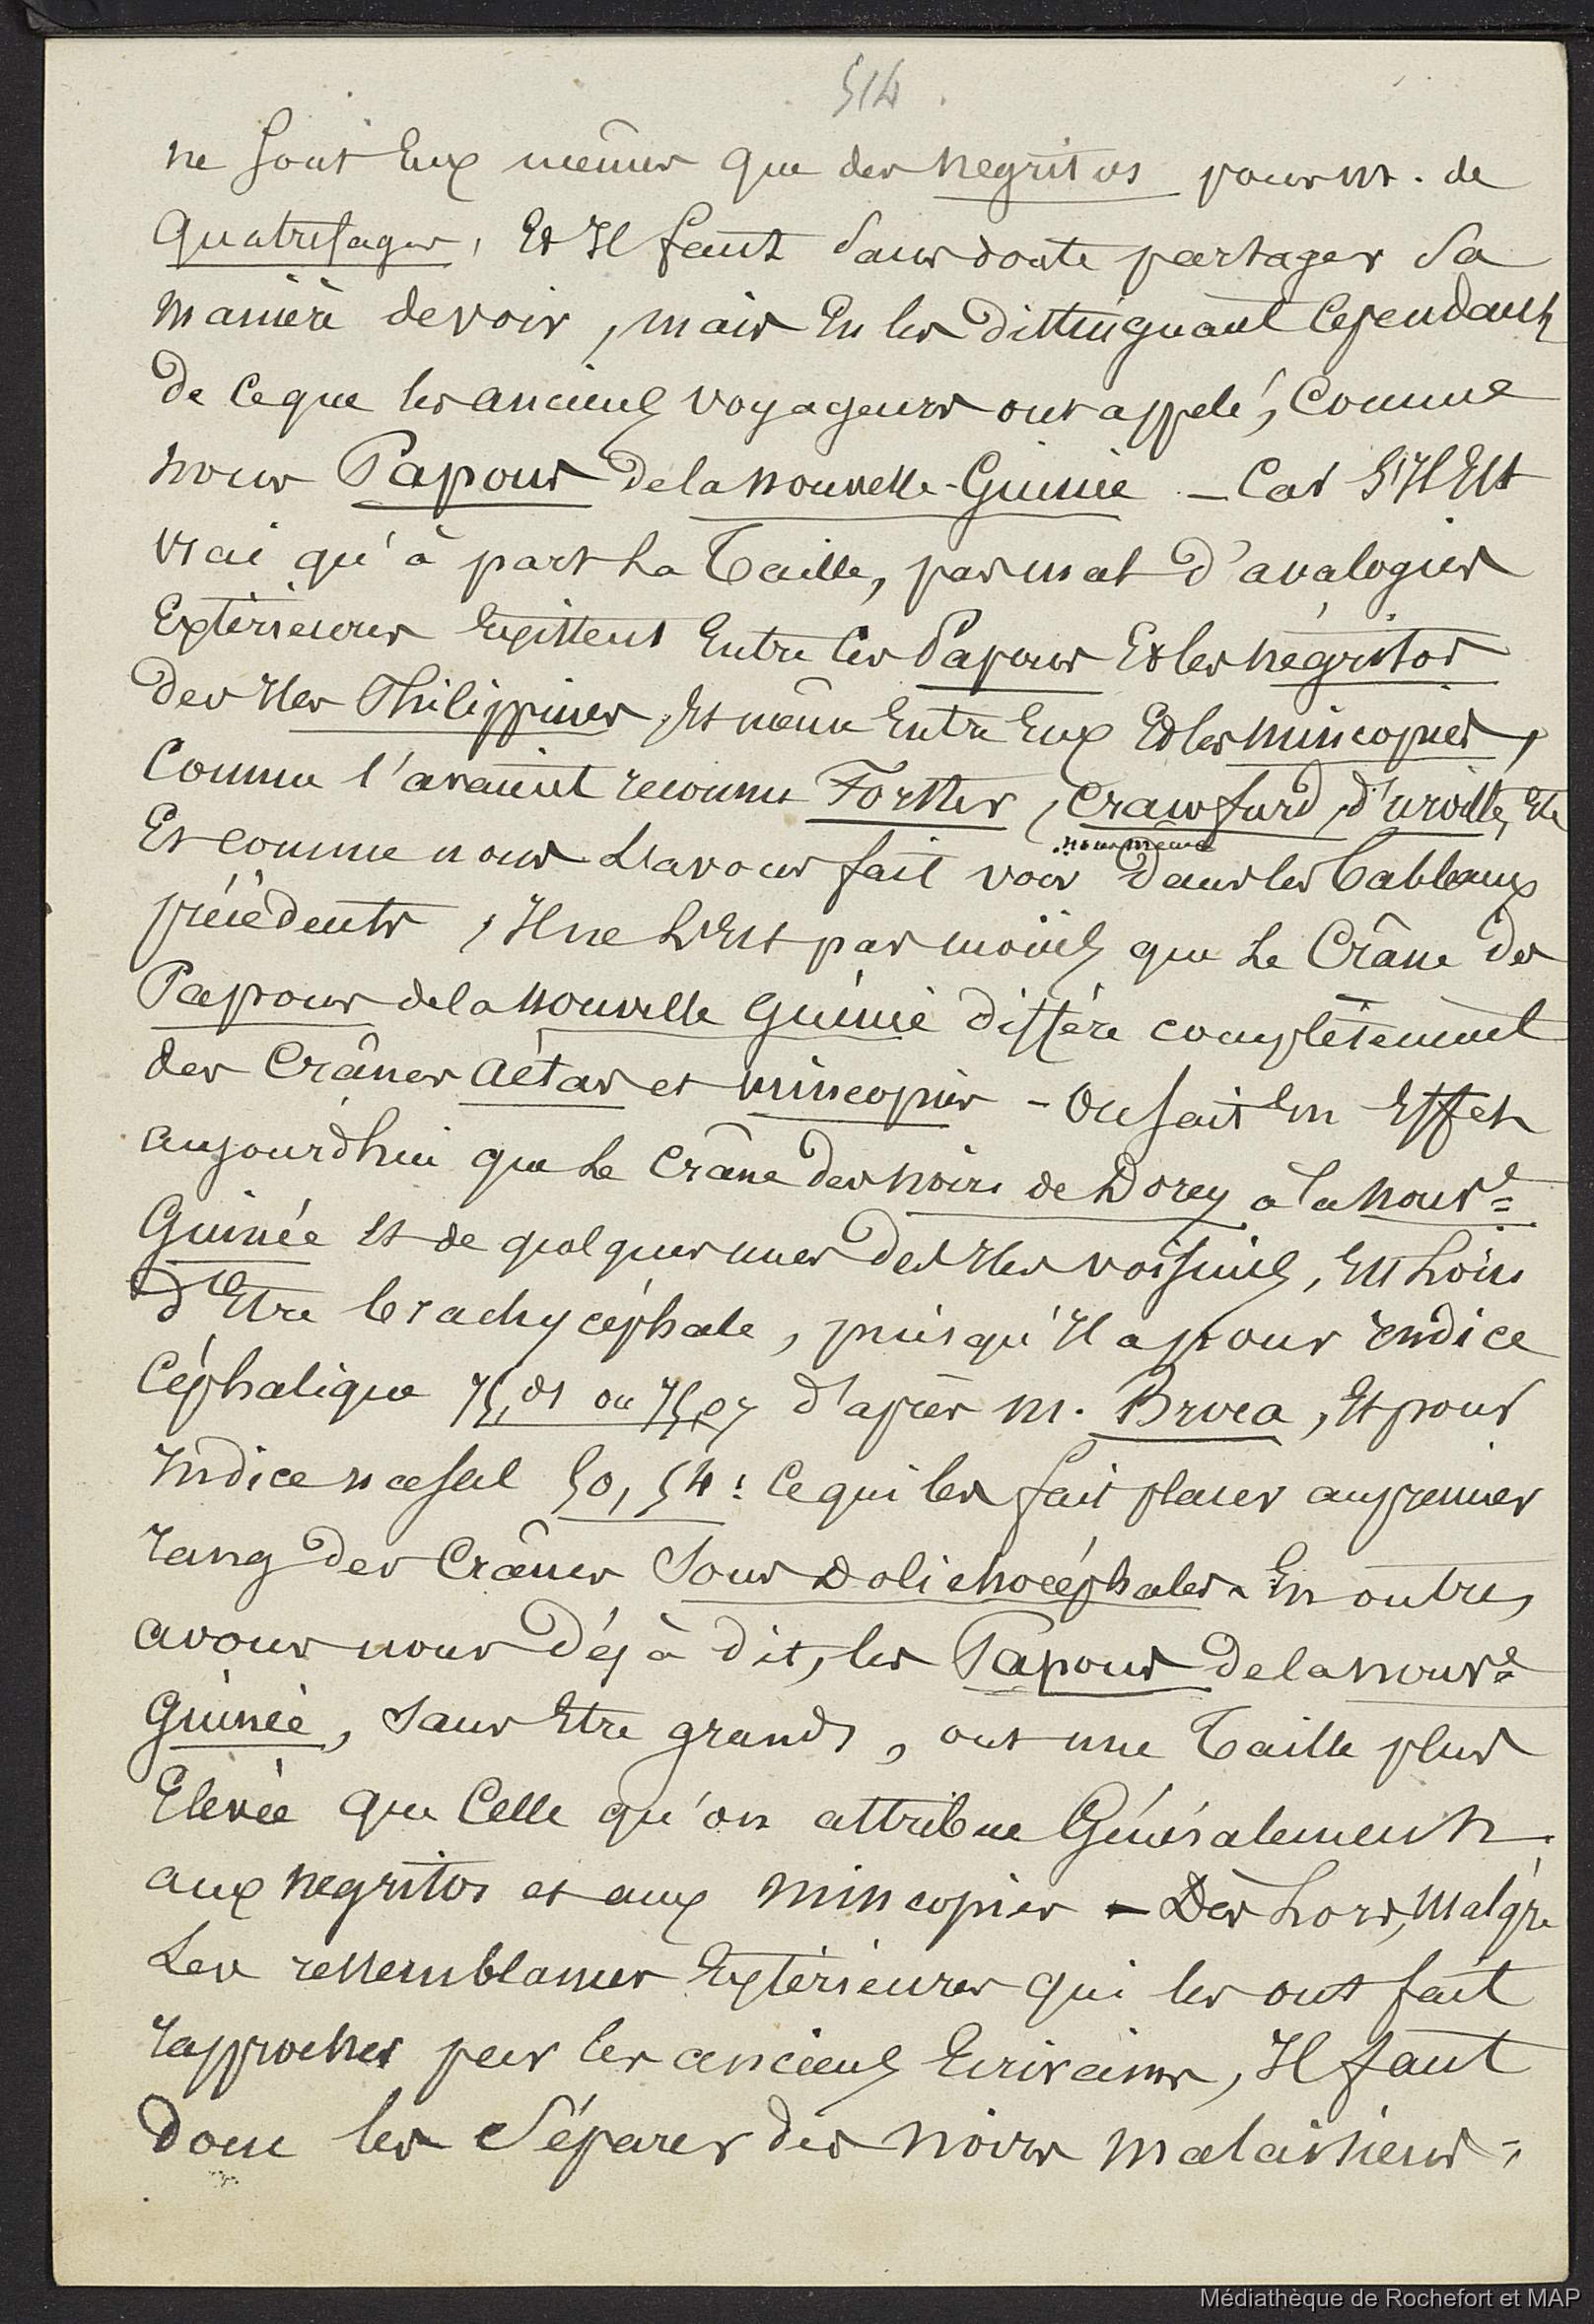 514.
ne sont Eux mêmes que des negritos pour m. de
Quatrefages, Et Il faut sans doute partager sa
manière de voir, mais En les distinguant Cependant
de ce que les anciens voyageurs ont appelé, Comme
nous Papous de la nouvelle-Guinée — Car S'Il Est
vrai qu'à part La Taille, pas mal d'analogies
Extérieures Existent Entre les Papous Et les négritos
des Iles Philippines, Et même Entre Eux Et les mincopies,
Comme l'avaient reconnu Forster, Crawfurd, d'urville, Etc
Et comme nous L'avons fait voir nous même dans les Tableaux
précédents, Il ne L'Est pas moins que Le Crâne des
Papous de la nouvelle Guinée diffère complètement
des Crânes aétas et mincopies - On sait En Effet
aujourdhui que Le Crâne des noirs de Dorey à la nouv.e
Guinée Et de quelques unes des Iles voisines, Est Loin
d'Etre brachycéphale, puisqu'Il a pour indice
Céphalique 75,01 ou 75,07 d'après m. Broca, Et pour
Indice nasal 50,54: Ce qui les fait placer au premier
rang des Crânes Sous Dolichocéphales. En outre,
avons nous déjà dit, les Papous de la nouv.e
Guinée, sans Etre grands, ont une Taille plus
Elevée que Celle qu'on attribue Généralement
aux negritos et aux mincopies - Dès Lors, malgré
Les ressemblances Extérieures qui les ont fait
rapprocher par les anciens Ecrivains, Il faut
donc les Séparer des noirs malaisiens-
Médiathèque de Rochefort et MAP